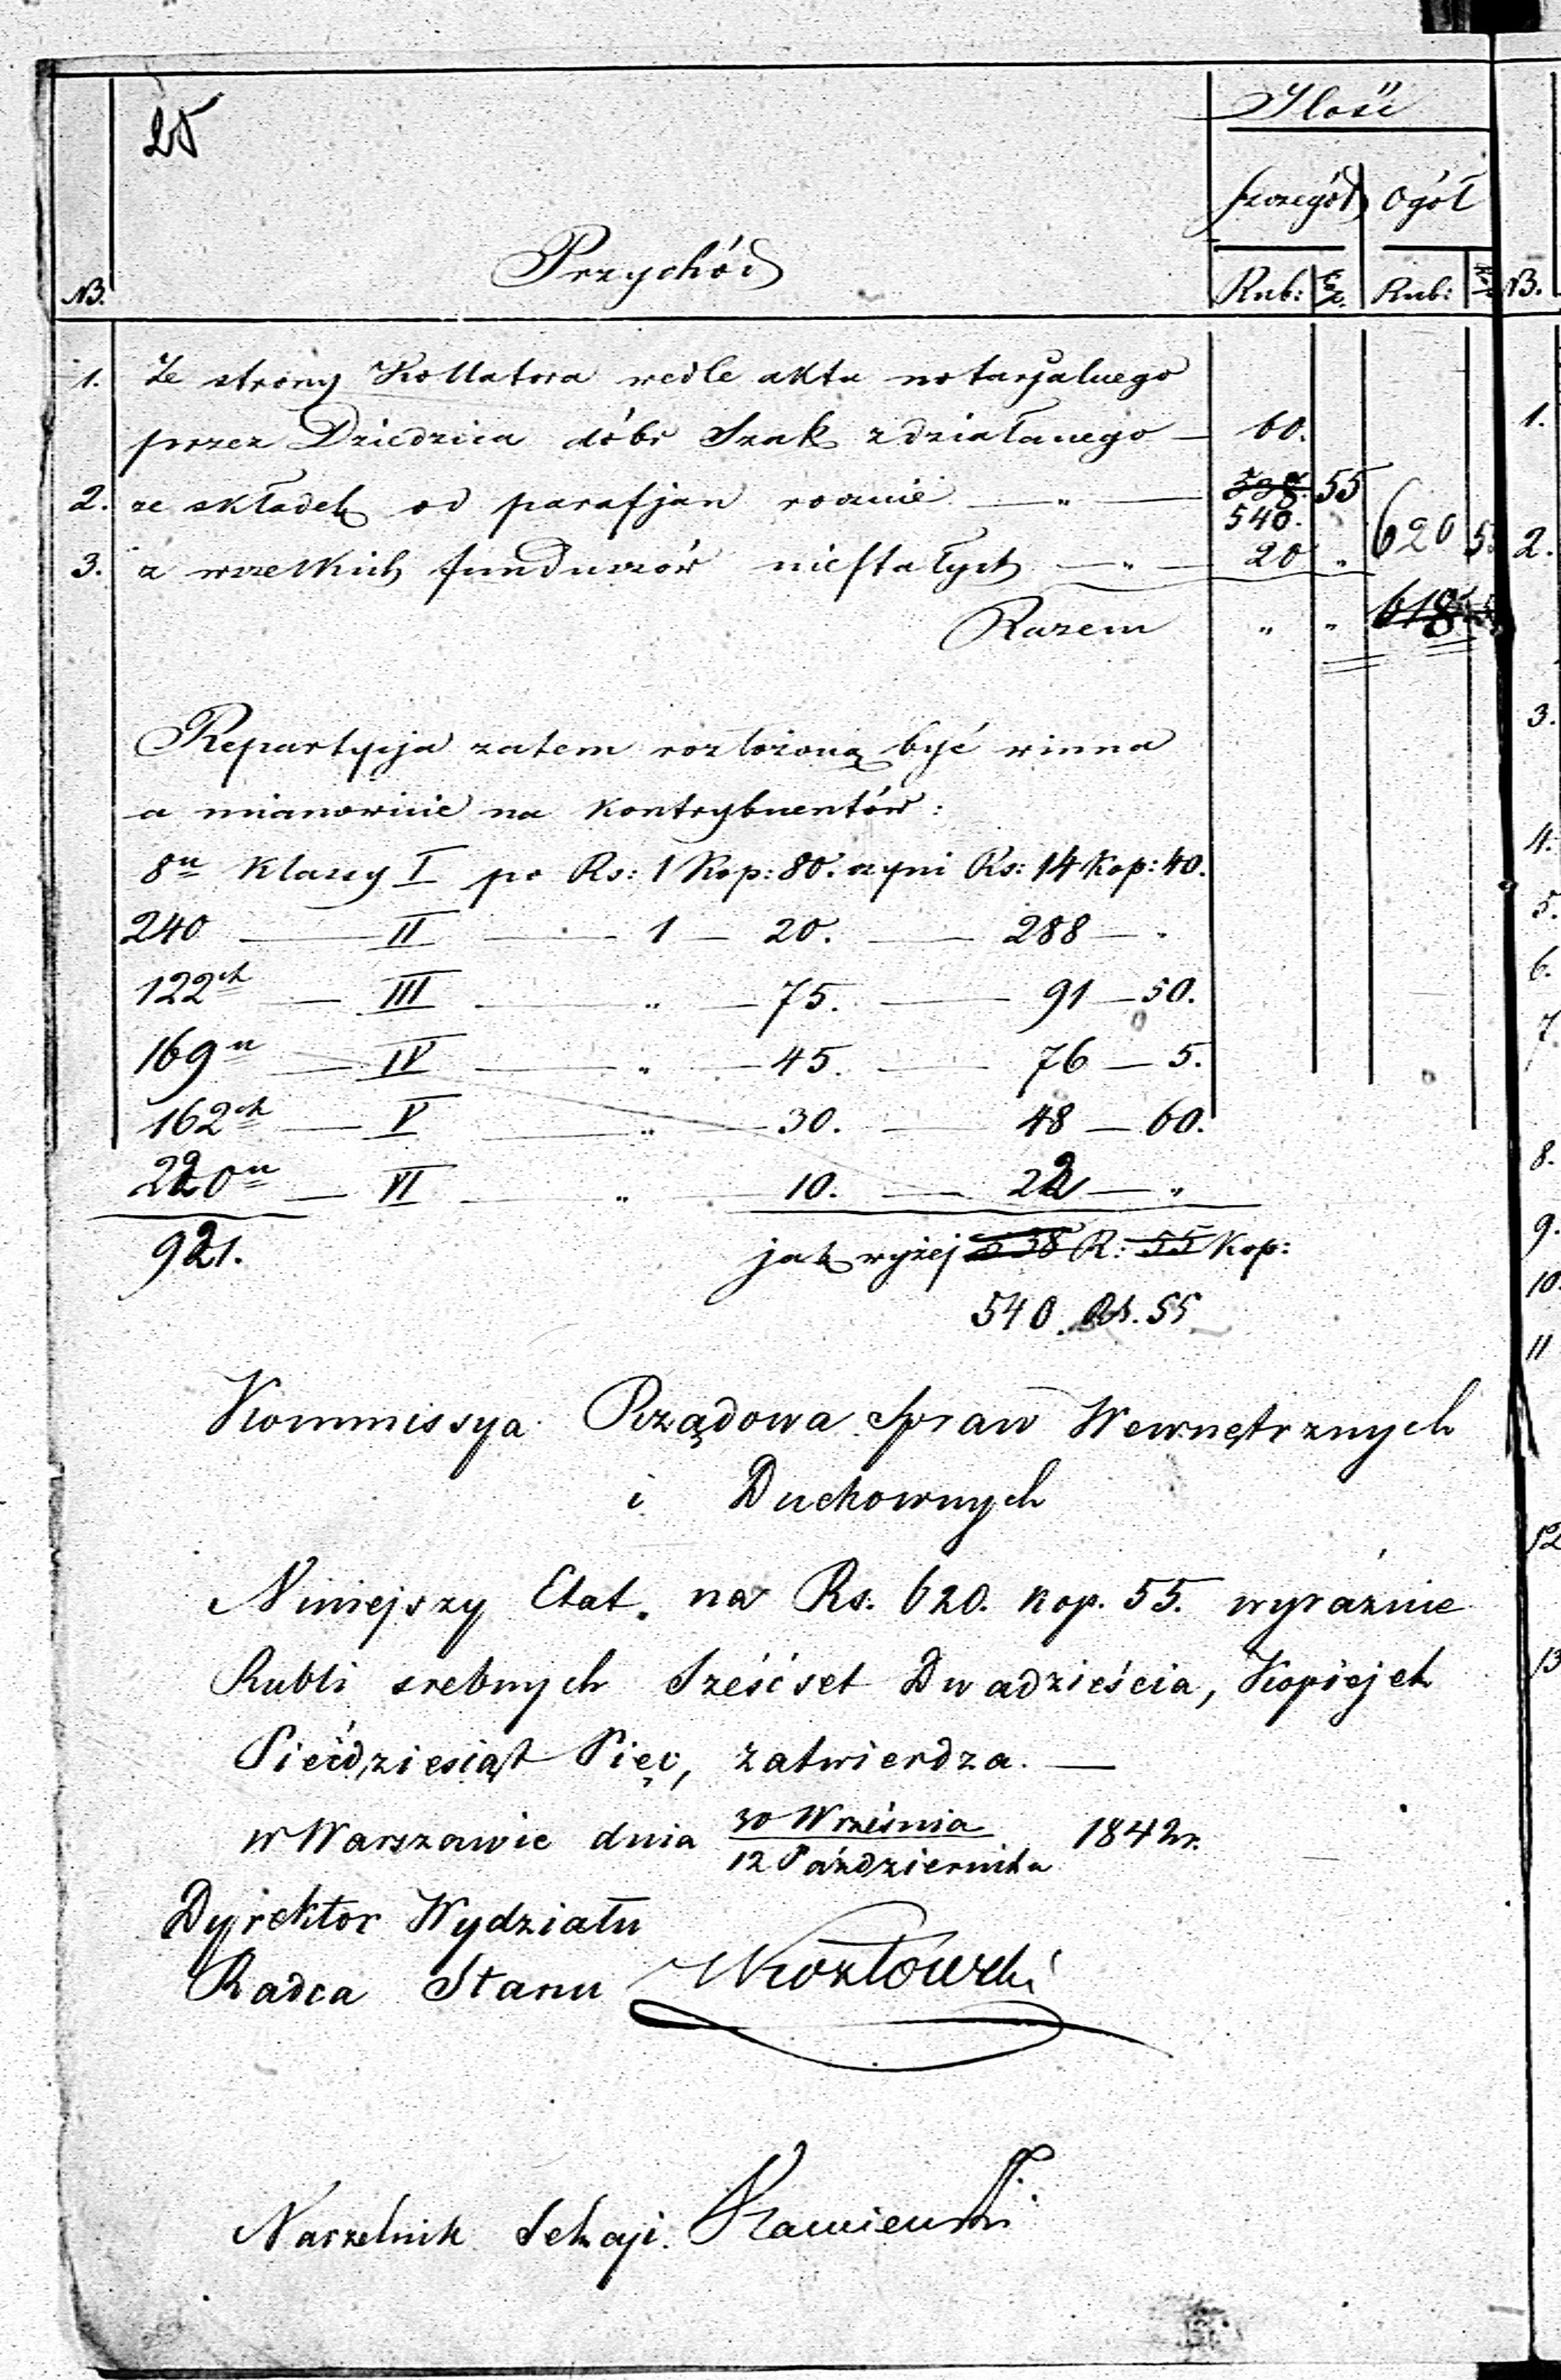 25
Ilość
Szczegół Ogół
NB. Przychód Rub: Kop. Rub: Kop. NB.
1. Ze strony Kollatora wedle aktu notaryalnego
przez Dziedzica dóbr Szak zdziałanego — 60. 1.
2. ze składek od parafjan rocznie — „ — 538. 55
540. 620 55 2.
3. z wszelkich funduszów niestałych — „ — 20 „
Razem „ „ 618
3.
Repartycja zatem rozłożoną być winna
a mianowicie na kontrybuentów: 4.
8u Klassy I po Rs: 1 Kop: 80. czyni Rs: 14 Kop: 40.
240 — II — 1 — 20. — 288 — „ 5.
122ch — III — „ — 75. — 91 — 50. 6.
169u — IV — „ — 45. — 76 — 5. 7.
162ch — V — „ — 30. — 48 — 60.
220u — VI — „ — 10. — 22 — „ 8.
921. jak wyżej 538 R: 55 Kop: 9.
540. Rs. 55 10.
11
Kommissya Rządowa Spraw Wewnętrznych
i Duchownych
12
Niniejszy Etat. na Rs. 620. kop. 55. wyraźnie
Rubli srebnych Sześćset Dwadzieścia, Kopiejek 13
Pięćdziesiąt Pięć, zatwierdza. —
w Warszawie dnia 30 Września 1842r.
12 Października
Dyrektor Wydziału
Radca Stanu Kozłowski
Naczelnik Sekcji. Kamieński